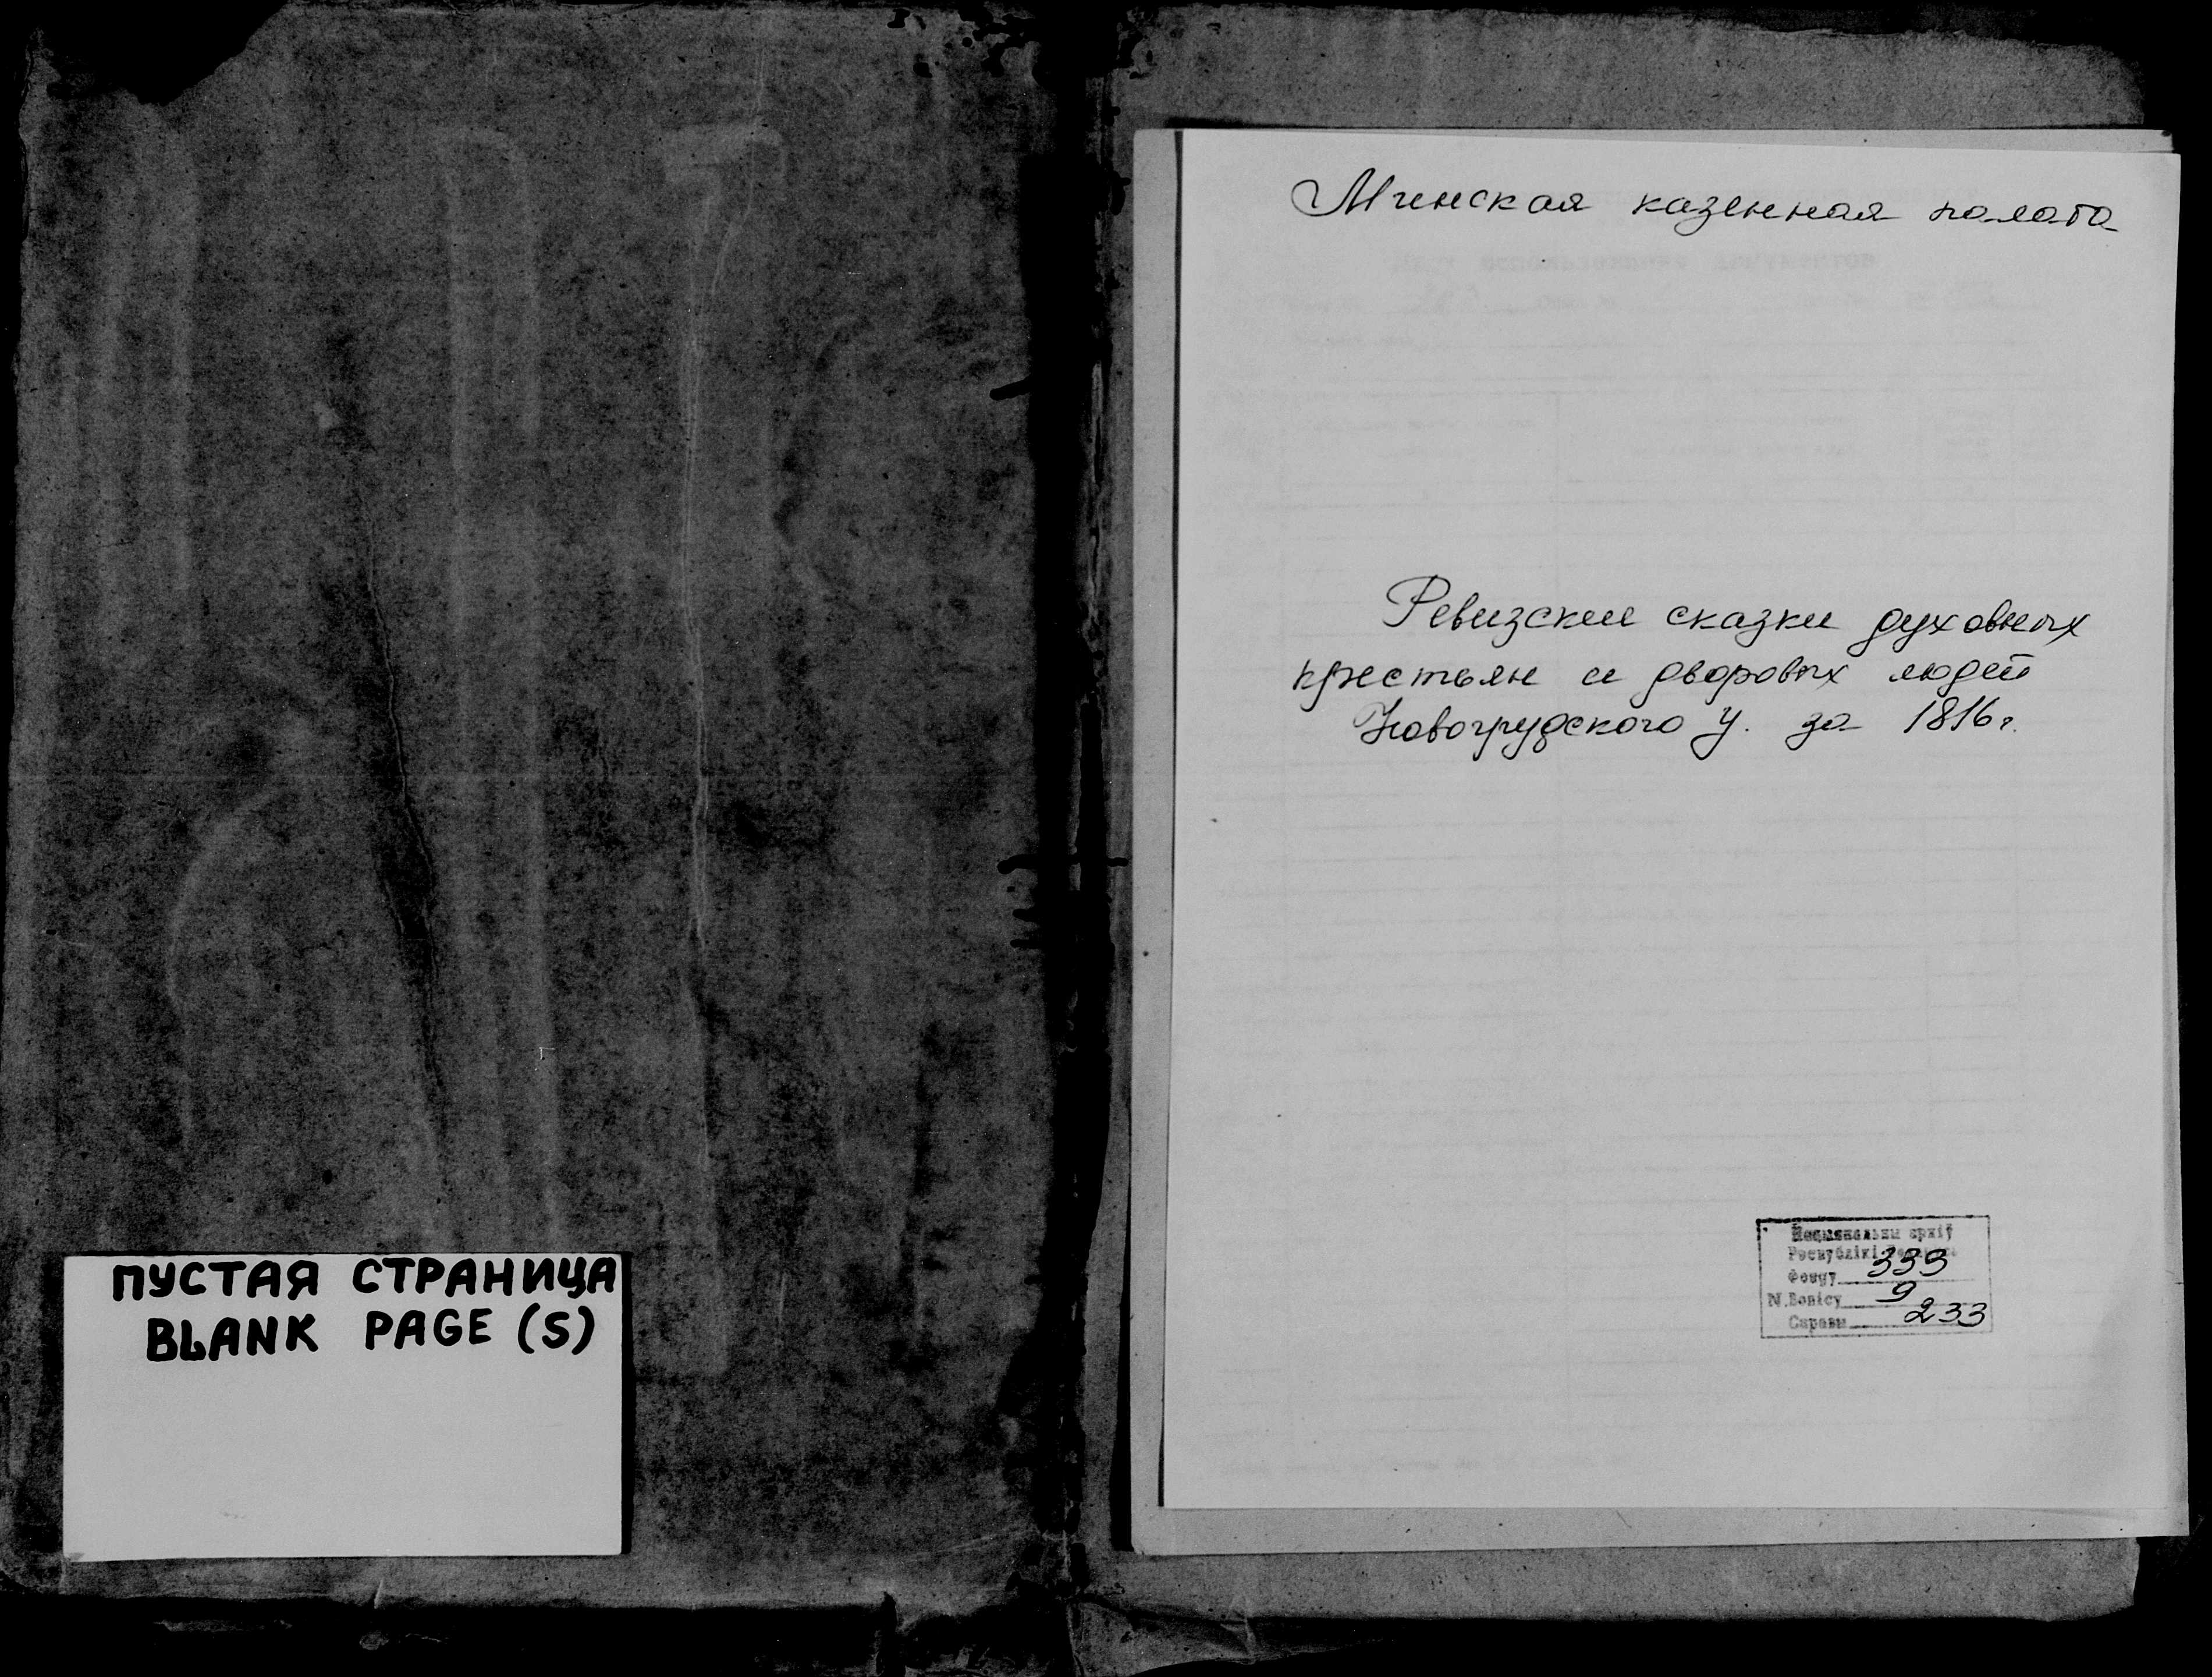 ПУСТАЯ СТРАНИЦА
BLANK PAGE (S)
Минская казенная палата
Ревизские сказки духовных
крестьян и дворовых людей
Новогрудского у. за 1816 г.
Нацыянальны архіў
Рэспублікі
Фонду 333
N. Вопісу 9
Справы 233